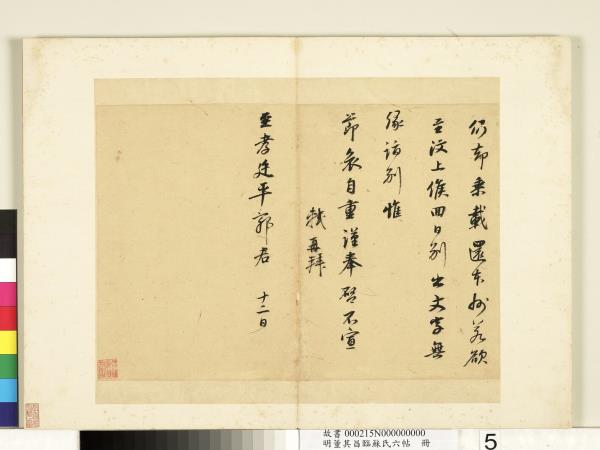 仍却乘載還本州若欲
至汶上候回日別出文字無
緣訪別惟
節哀自重謹奉啓不宣
軾再拜
至孝廷平郭君
十二日
故書 000215N000000000
明董其昌臨蘇氏六帖 冊
5